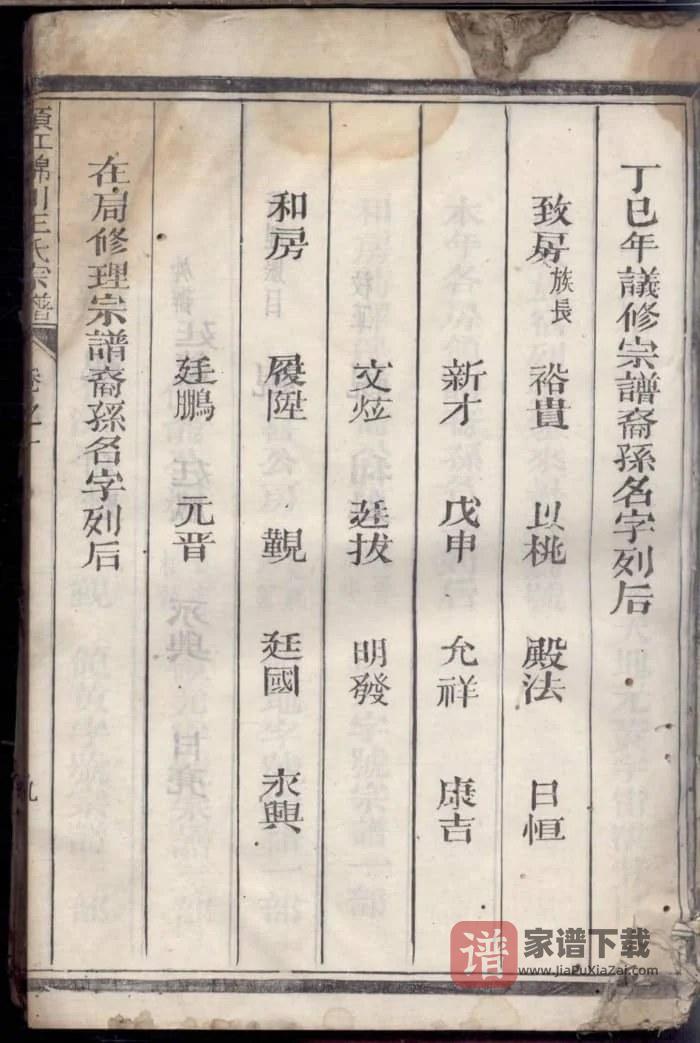 丁巳年議修宗譜裔孫名字列后
致房族長 裕貴 以桃 殿法 日恒
新才 戊申 允祥 康吉
文炫 廷拔 明發
和房 履陞 覲 廷國 永興
廷鵬 元晋
在局修理宗譜裔孫名字列后
江錦川王氏宗譜
卷之
九
谱 家谱下载
www.JiaPuXiaZai.com